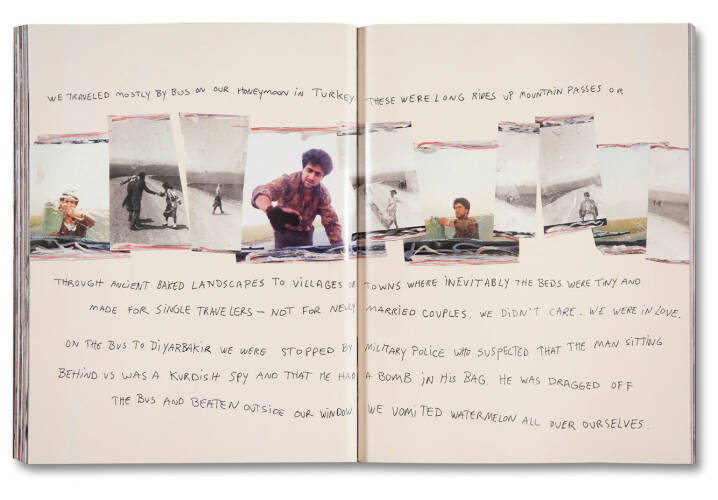 WE TRAVELED MOSTLY BY BUS ON OUR HONEYMOON IN TURKEY. THESE WERE LONG RIDES UP MOUNTAIN PASSES OR
THROUGH ANCIENT BAKED LANDSCAPES TO VILLAGES OR TOWNS WHERE INEVITABLY THE BEDS WERE TINY AND
MADE FOR SINGLE TRAVELERS – NOT FOR NEWLY MARRIED COUPLES. WE DIDN'T CARE. WE WERE IN LOVE.
ON THE BUS TO DIYARBAKIR WE WERE STOPPED BY MILITARY POLICE WHO SUSPECTED THAT THE MAN SITTING
BEHIND US WAS A KURDISH SPY AND THAT HE HAD A BOMB IN HIS BAG. HE WAS DRAGGED OFF
THE BUS AND BEATEN OUTSIDE OUR WINDOW. WE VOMITED WATERMELON ALL OVER OURSELVES.